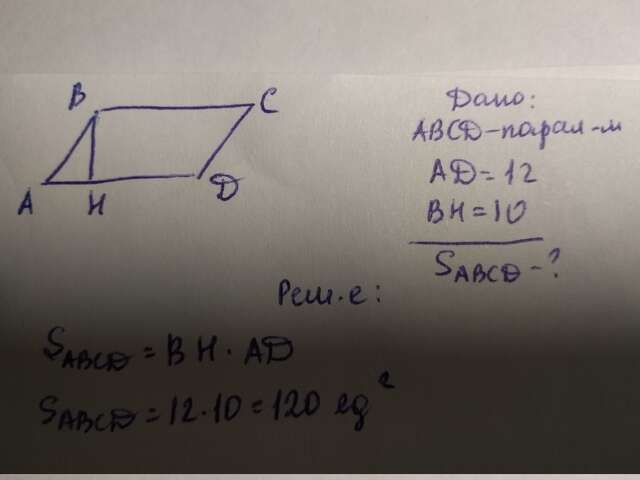 B C
A H D
Дано:
ABCD-парал-м
AD=12
BH=10
SABCD-?
Реш.е:
SABCD=BH·AD
SABCD=12·10=120 ед²